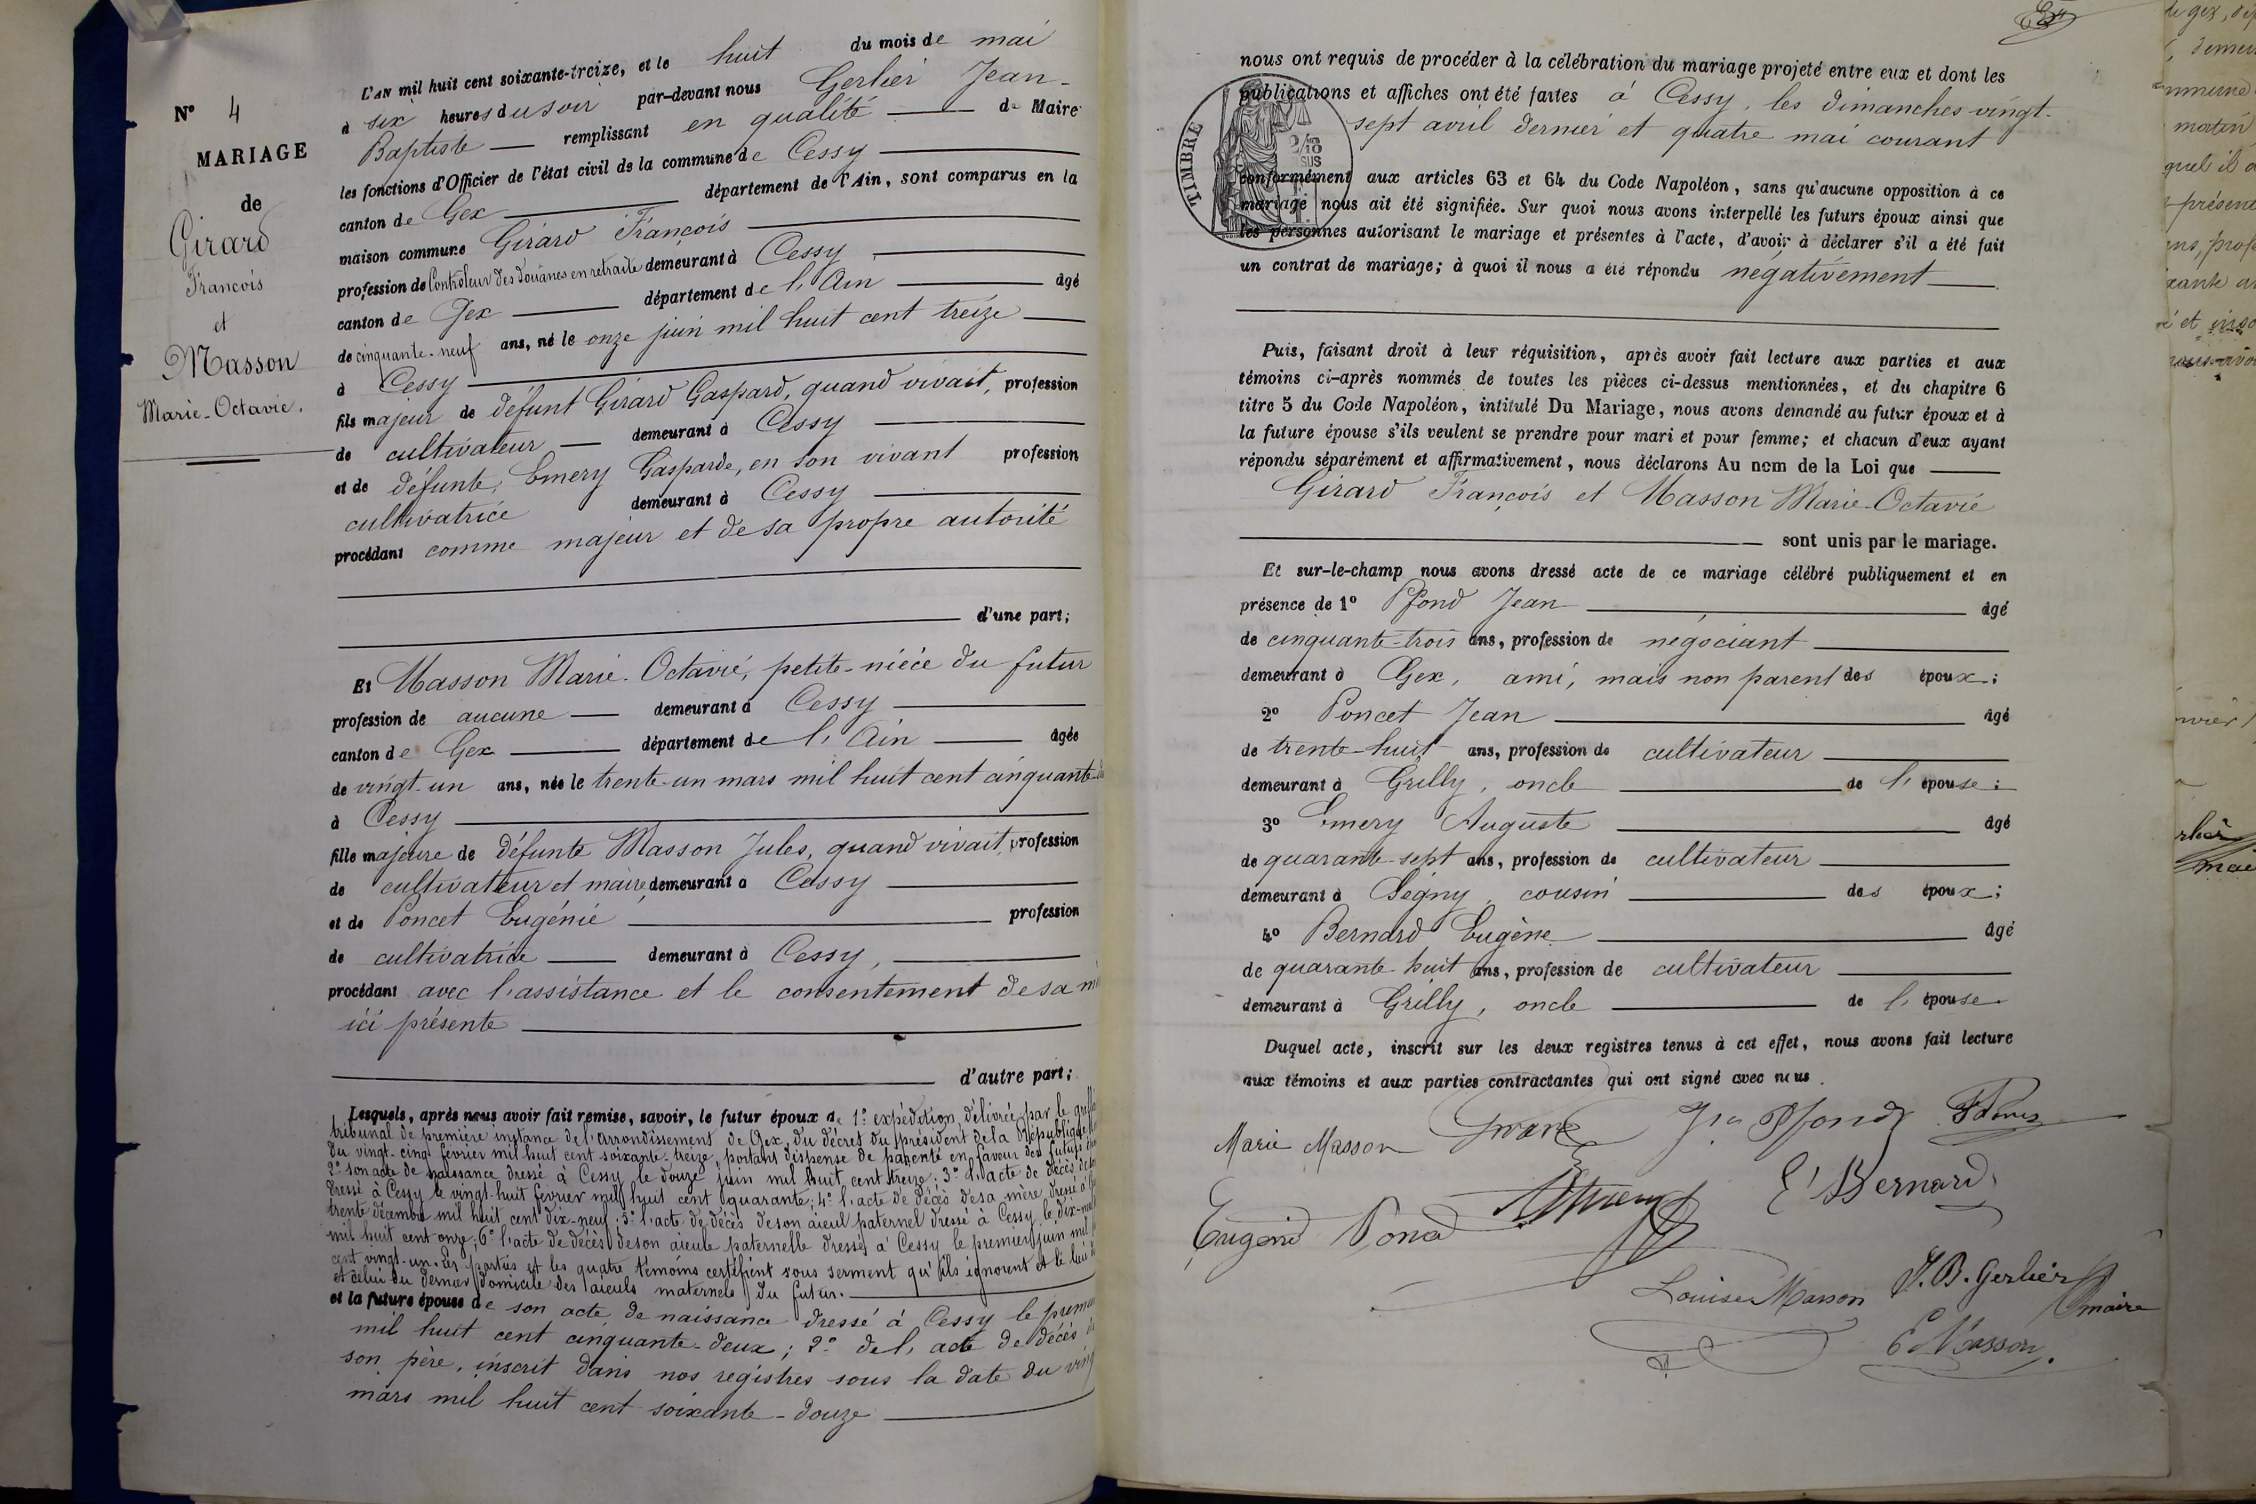 L'AN mil huit cent soixante-treize, et le huit du mois de mai
à six heures du soir par-devant nous Gerlier Jean-
Baptiste remplissant en qualité de Maire
les fonctions d'Officier de l'état civil de la commune de Cessy
canton de Gex département de l'Ain, sont comparus en la
maison commune Girard François
profession de Contrôleur des Douanes en retraite demeurant à Cessy
canton de Gex département de l'Ain âgé
de cinquante-neuf ans, né le onze juin mil huit cent treize
à Cessy
fils majeur de défunt Girard Gaspard, quand vivait, profession
de cultivateur demeurant à Cessy
et de défunte, Emery Gasparde, en son vivant profession
cultivatrice demeurant à Cessy
procédant comme majeur et de sa propre autorité
d'une part;
N° 4
MARIAGE
de
Girard
François
et
Masson
Marie-Octavie.
Et Masson Marie-Octavie, petite-nièce du futur
profession de aucune demeurant à Cessy
canton de Gex département de l'Ain âgée
de vingt-un ans, née le trente-un mars mil huit cent cinquante-
à Cessy
fille majeure de défunte Masson Jules, quand vivait, profession
de cultivateur et maire, demeurant à Cessy
et de Poncet Eugénie profession
de cultivatrice demeurant à Cessy,
procédant avec l'assistance et le consentement de sa
ici présente
d'autre part;
Lesquels, après nous avoir fait remise, savoir, le futur époux de 1° expédition, délivrée par le
tribunal de première instance de l'arrondissement de Gex, du décret du président de la République
du vingt-cinq février mil huit cent soixante-treize, portant dispense de parenté en faveur des futurs
2° son acte de naissance dressé à Cessy le douze juin mil huit cent treize; 3° l'acte de décès de
dressé à Cessy le vingt-huit février mil huit cent quarante; 4° l'acte de décès de sa mère dressé à
trente décembre mil huit cent dix-neuf; 5° l'acte de décès de son aïeul paternel dressé à Cessy le dix-
mil huit cent onze; 6° l'acte de décès de son aïeule paternelle dressé à Cessy le premier juin mil
cent vingt-un. Les parties et les quatre témoins certifient sous serment qu'ils ignorent et le lieu
et celui du dernier domicile des aïeuls maternels du futur.
et la future épouse de son acte de naissance dressé à Cessy le
mil huit cent cinquante-deux; 2° de l'acte de décès
son père, inscrit dans nos registres sous la date du
mars mil huit cent soixante-douze
nous ont requis de procéder à la célébration du mariage projeté entre eux et dont les
publications et affiches ont été faites à Cessy, les dimanches vingt-
sept avril dernier et quatre mai courant
TIMBRE
conformément aux articles 63 et 64 du Code Napoléon, sans qu'aucune opposition à ce
mariage nous ait été signifiée. Sur quoi nous avons interpellé les futurs époux ainsi que
les personnes autorisant le mariage et présentes à l'acte, d'avoir à déclarer s'il a été fait
un contrat de mariage; à quoi il nous a été répondu négativement
Puis, faisant droit à leur réquisition, après avoir fait lecture aux parties et aux
témoins ci-après nommés de toutes les pièces ci-dessus mentionnées, et du chapitre 6
titre 5 du Code Napoléon, intitulé Du Mariage, nous avons demandé au futur époux et à
la future épouse s'ils veulent se prendre pour mari et pour femme; et chacun d'eux ayant
répondu séparément et affirmativement, nous déclarons Au nom de la Loi que
Girard François et Masson Marie-Octavie
sont unis par le mariage.
Et sur-le-champ nous avons dressé acte de ce mariage célébré publiquement et en
présence de 1° Pfond Jean âgé
de cinquante-trois ans, profession de négociant
demeurant à Gex, ami, mais non parent des époux;
2° Poncet Jean âgé
de trente-huit ans, profession de cultivateur
demeurant à Grilly, oncle de l'épouse;
3° Emery Auguste âgé
de quarante-sept ans, profession de cultivateur
demeurant à Ségny, cousin des époux;
4° Bernard Eugène âgé
de quarante-huit ans, profession de cultivateur
demeurant à Grilly, oncle de l'épouse
Duquel acte, inscrit sur les deux registres tenus à cet effet, nous avons fait lecture
aux témoins et aux parties contractantes qui ont signé avec nous.
Marie Masson Girard Pfond
E Bernard
Louise Masson J. B. Gerlier
maire
E Masson